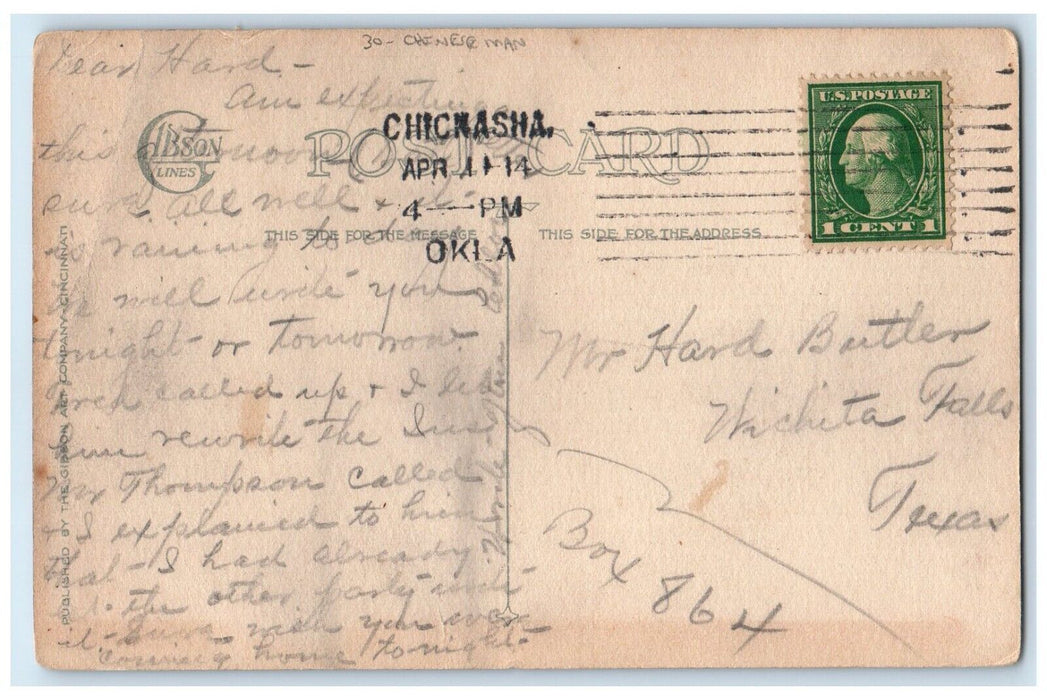 30- CHINESE MAN
Dear Hard -
am expecting
this
sure all well &
is raining
will write you
tonight or tomorrow
called up & I let
him rewrite the Ins
Mr Thompson called
& I explained to him
that I had already
let the other party write
it - sure wish you were
coming home tonight -
GIBSON
LINES
POST CARD
THIS SIDE FOR THE MESSAGE
THIS SIDE FOR THE ADDRESS
PUBLISHED BY THE GIBSON ART COMPANY, CINCINNATI
CHICKASHA,
APR 11 14
4 - PM
OKLA
U.S. POSTAGE
1 CENT 1
Mr Hard Butler
Wichita Falls
Texas
Box 864